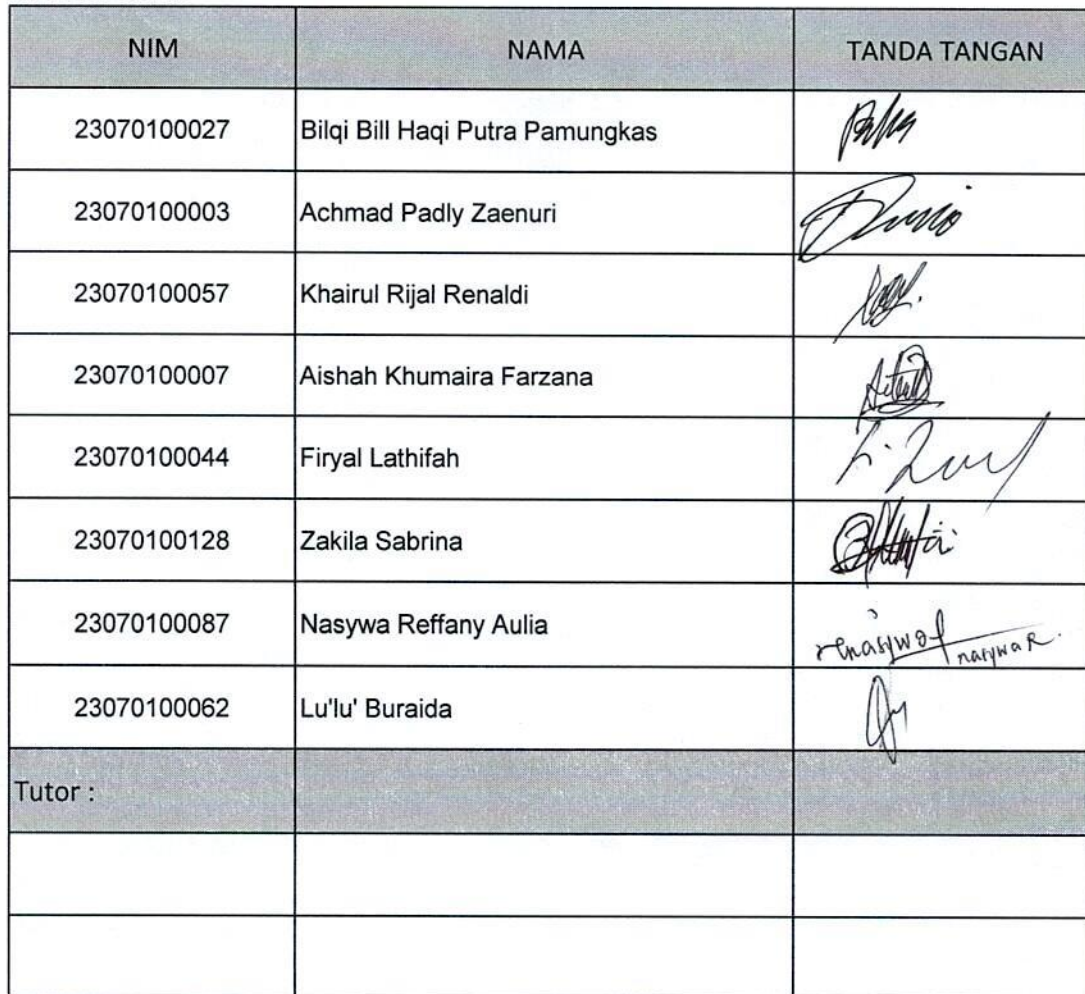 NIM NAMA TANDA TANGAN
23070100027 Bilqi Bill Haqi Putra Pamungkas
23070100003 Achmad Padly Zaenuri
23070100057 Khairul Rijal Renaldi
23070100007 Aishah Khumaira Farzana
23070100044 Firyal Lathifah
23070100128 Zakila Sabrina
23070100087 Nasywa Reffany Aulia nasywa R.
23070100062 Lu'lu' Buraida
Tutor :